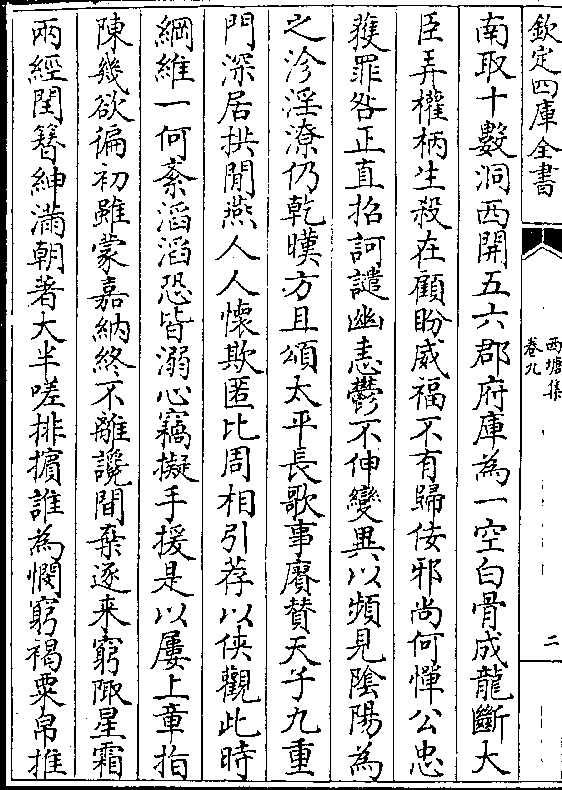 欽定四庫全書
西塘集
卷九
二
南取十數洞西開五六郡府庫為一空白骨成龍斷大
臣弄權柄生殺在顧盼威福不有歸佞邪尚何憚公忠
獲罪咎正直招訶譴幽恚鬱不伸變異以頻見陰陽為
之沴淫潦仍乾暵方且頌太平長歌事賡贊天子九重
門深居拱閒燕人人懷欺匿比周相引荐以俠觀此時
綱維一何紊滔滔恐皆溺心竊擬手援是以屢上章指
陳幾欲徧初雖蒙嘉納終不離讒間棄逐来窮陬星霜
兩經閏簪紳滿朝著大半嗟排擯誰為憫窮褐粟帛推